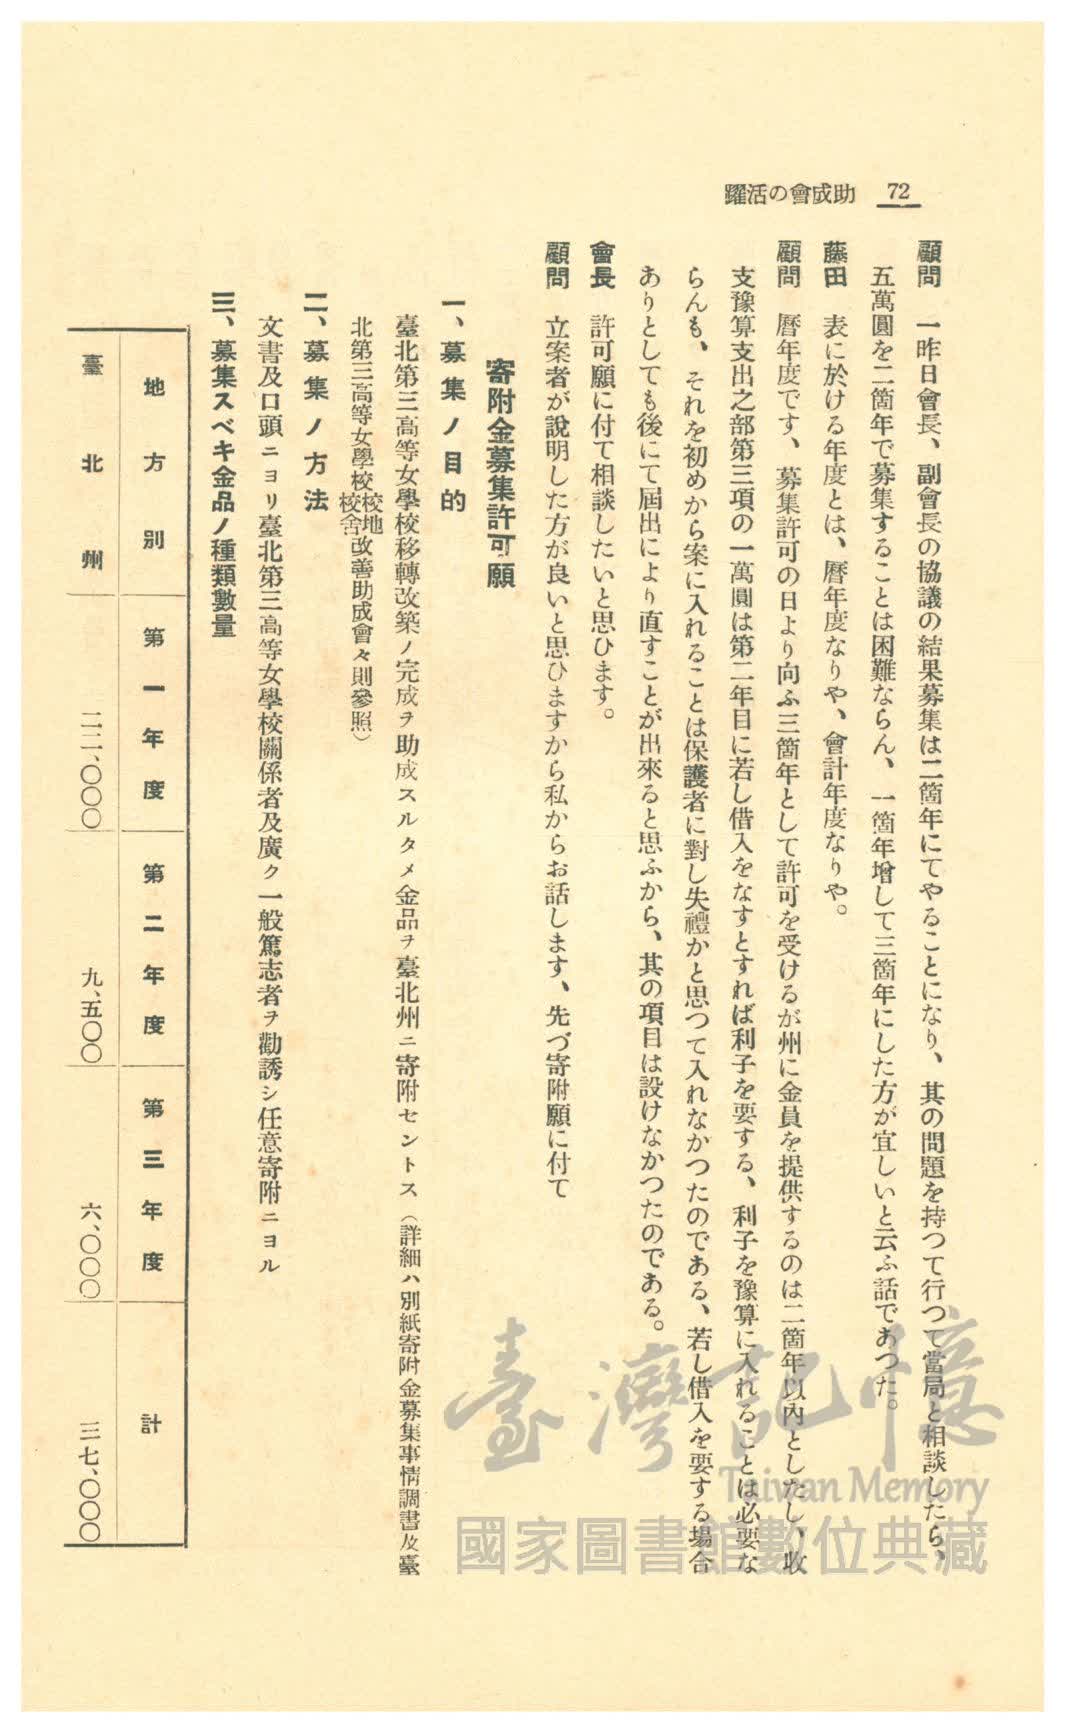 助成會の活躍 72
顧問　一昨日會長、副會長の協議の結果募集は二箇年にてやることになり、其の問題を持つて行つて當局と相談したら、
五萬圓を二箇年で募集することは困難ならん、一箇年增して三箇年にした方が宜しいと云ふ話であつた。
藤田　表に於ける年度とは、曆年度なりや、會計年度なりや。
顧問　曆年度です、募集許可の日より向ふ三箇年として許可を受けるが州に金員を提供するのは二箇年以內としたし、收
支豫算支出之部第三項の一萬圓は第二年目に若し借入をなすとすれば利子を要する、利子を豫算に入れることは必要な
らんも、それを初めから案に入れることは保護者に對し失禮かと思つて入れなかつたのである、若し借入を要する場合
ありとしても後にて屆出により直すことが出來ると思ふから、其の項目は設けなかつたのである。
會長　許可願に付て相談したいと思ひます。
顧問　立案者が說明した方が良いと思ひますから私からお話します、先づ寄附願に付て
寄附金募集許可願
一、募集ノ目的
臺北第三高等女學校移轉改築ノ完成ヲ助成スルタメ金品ヲ臺北州ニ寄附セントス（詳細ハ別紙寄附金募集事情調書及臺
北第三高等女學校校地校舍改善助成會々則參照）
二、募集ノ方法
文書及口頭ニヨリ臺北第三高等女學校關係者及廣ク一般篤志者ヲ勸誘シ任意寄附ニヨル
三、募集スベキ金品ノ種類數量
地方別　第一年度　第二年度　第三年度　計
臺北州　二二、〇〇〇　九、五〇〇　六、〇〇〇　三七、〇〇〇
臺灣記憶
Taiwan Memory
國家圖書館數位典藏